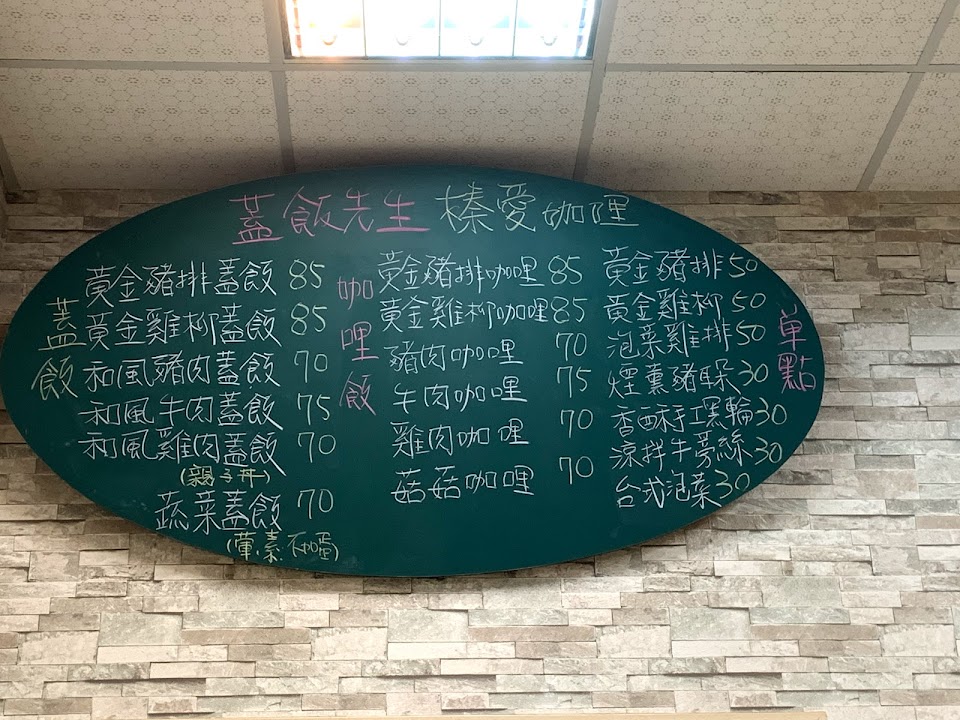 蓋飯先生 榛愛咖哩
蓋飯
黃金豬排蓋飯 85
黃金雞柳蓋飯 85
和風豬肉蓋飯 70
和風牛肉蓋飯 75
和風雞肉蓋飯 70
(親子丼)
蔬菜蓋飯 70
(葷.素.不加蛋)
咖哩飯
黃金豬排咖哩 85
黃金雞柳咖哩 85
豬肉咖哩 70
牛肉咖哩 75
雞肉咖哩 70
菇菇咖哩 70
單點
黃金豬排 50
黃金雞柳 50
泡菜雞排 50
煙薰豬朶 30
香酥手工黑輪 30
涼拌牛蒡絲 30
台式泡菜 30